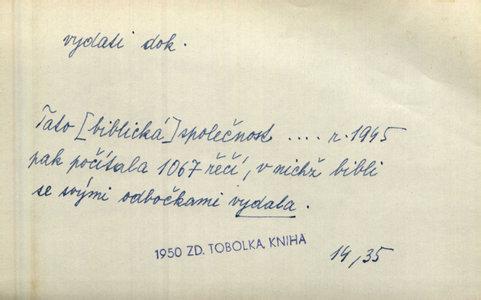 vydati dok.
Tato [biblická] společnost .... r. 1945
pak počítala 1067 řěčí, v nichž bibli
se svými odbočkami vydala.
1950 ZD. TOBOLKA, KNIHA
14,35